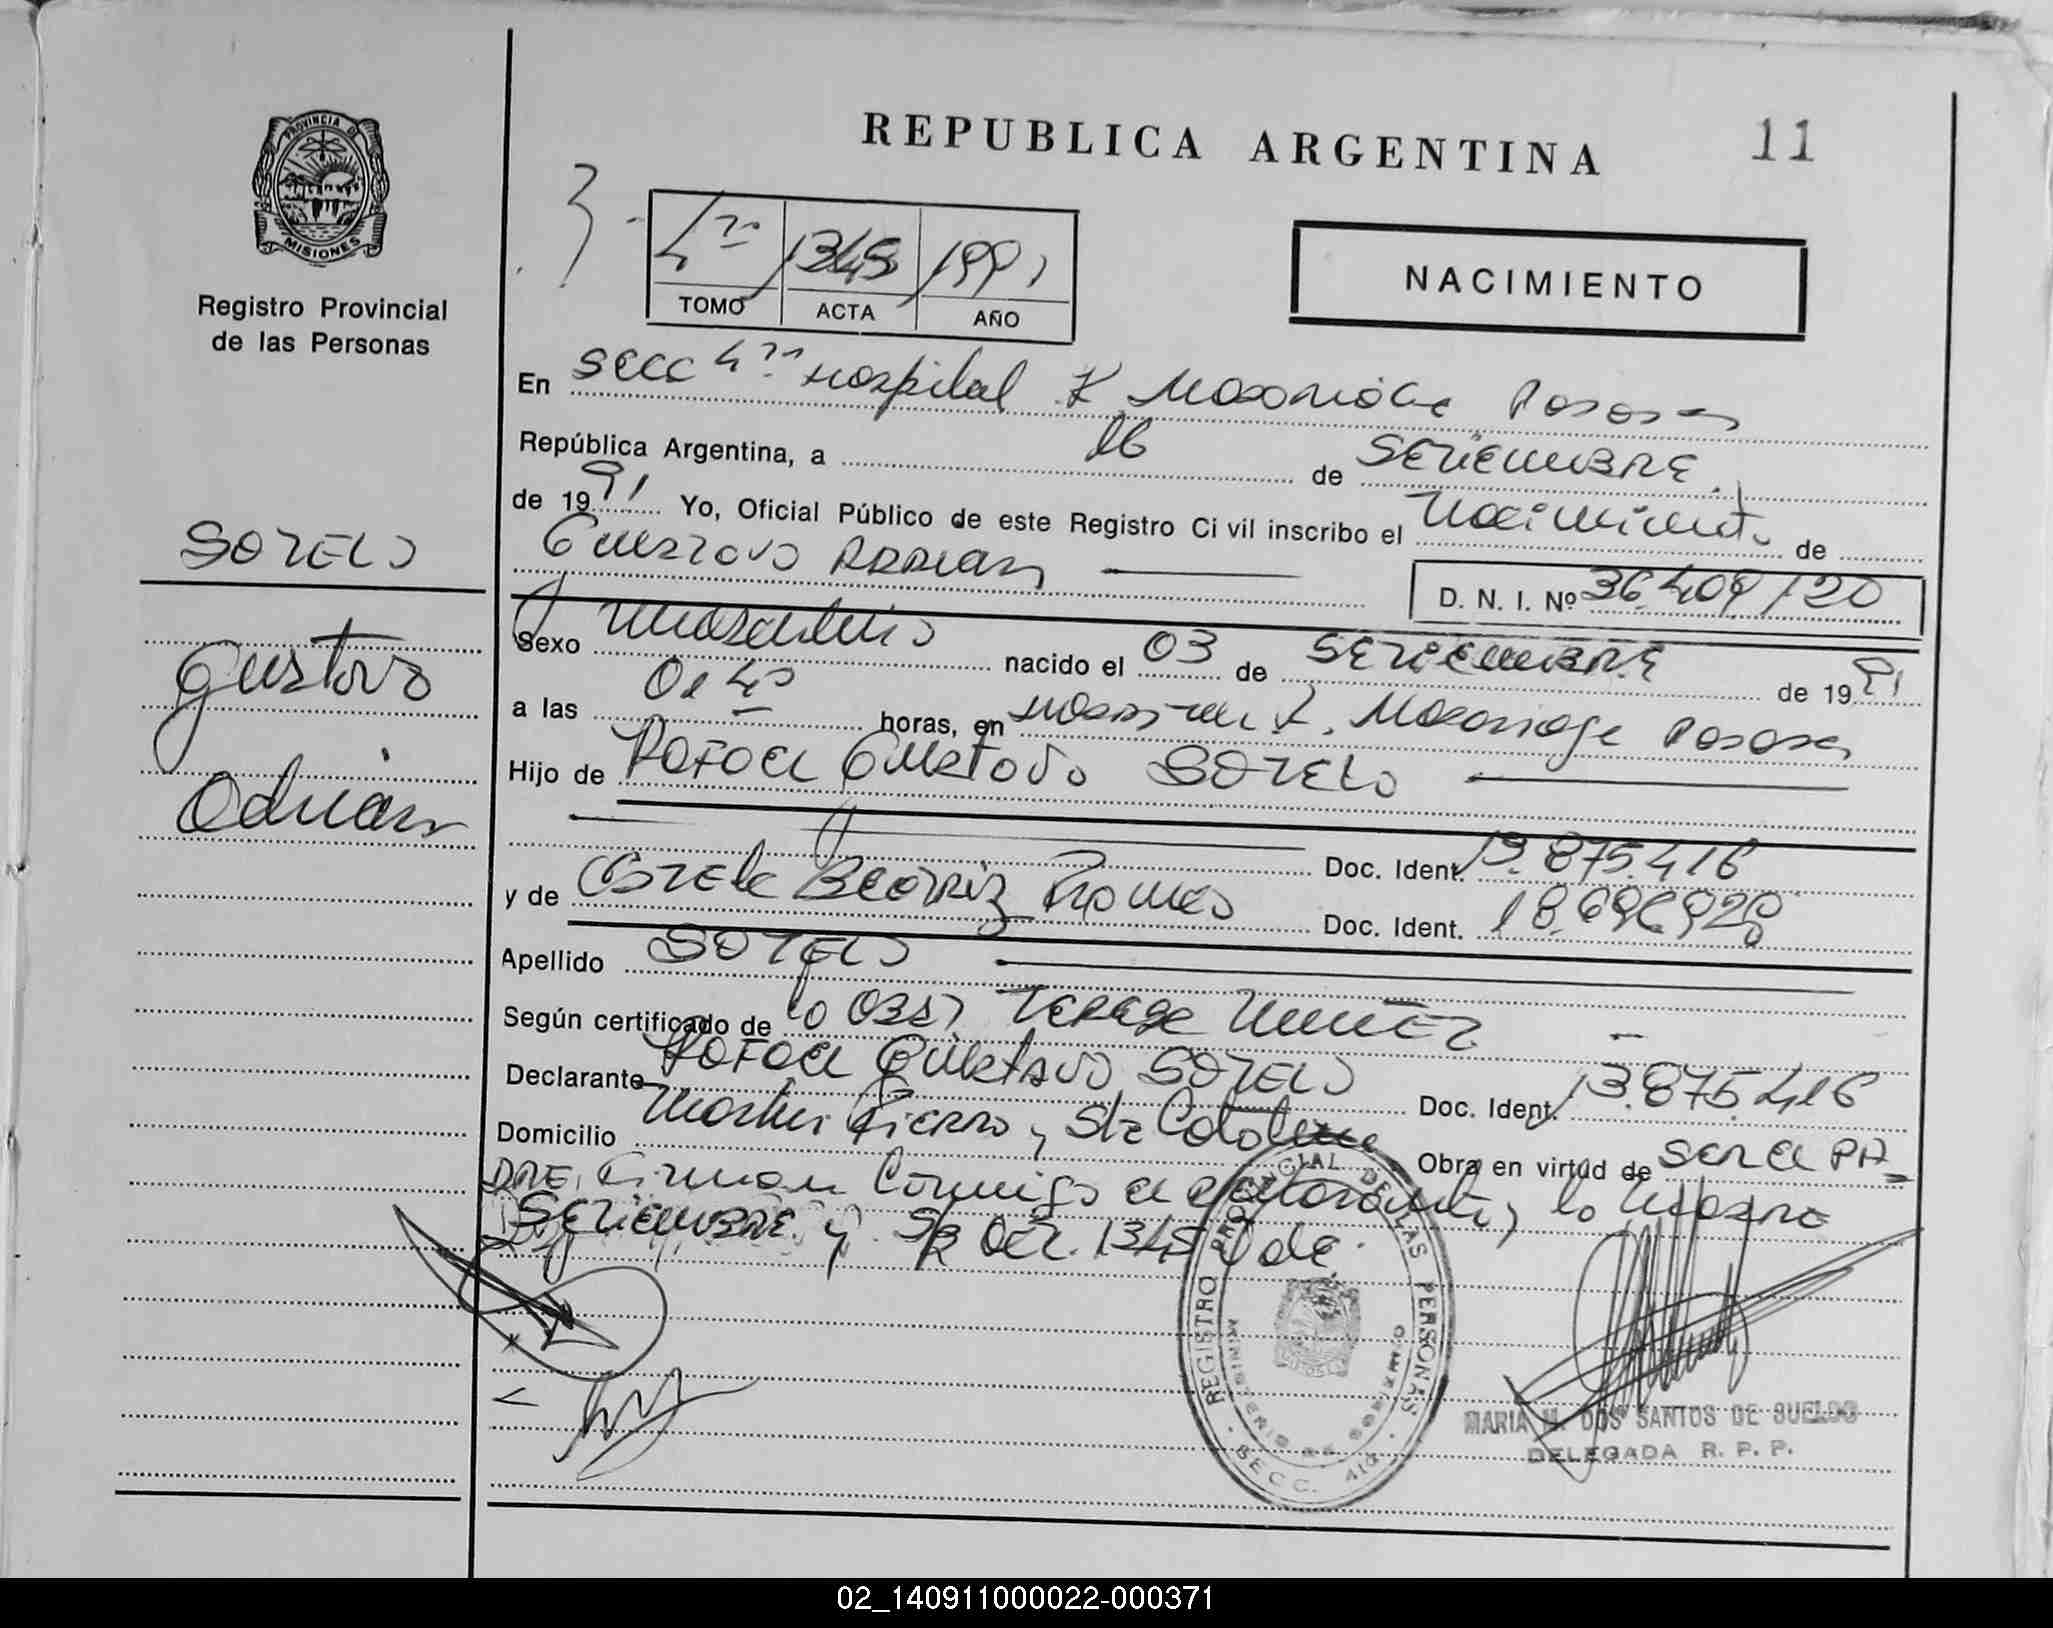 PROVINCIA DE
MISIONES
Registro Provincial
de las Personas
REPUBLICA ARGENTINA
11
3-
4ta 1345 1991
TOMO ACTA AÑO
NACIMIENTO
En Secc 4ta Hospital R. Posadas
República Argentina, a 16 de SETIEMBRE
de 1991 Yo, Oficial Público de este Registro Civil inscribo el Nacimiento de
Gustavo ADRIAN
D. N. I. Nº 36.409120
SOTELO
Gustavo
Adrián
Sexo Masculino nacido el 03 de SETIEMBRE de 1991
a las 01 40 horas, en Hospital R. Posadas
Hijo de Rafael Gustavo SOTELO
Doc. Ident. 13.875.416
y de Beatriz Ramos Doc. Ident. 18.696928
Apellido SOTELO
Según certificado de la Obst. Teresa
Declarante Rafael Gustavo SOTELO Doc. Ident. 13.875.416
Domicilio Martin Fierro y Sta Catalina Obra en virtud de ser el PA-
DRE. Firman Conmigo el declarante y la Madre
SETIEMBRE y 1345 Vale.
REGISTRO PROVINCIAL DE LAS PERSONAS
MINISTERIO DE GOBIERNO
SECC. 4ta
MARIA M. DOS SANTOS DE SUELDO
DELEGADA R. P. P.
02_140911000022-000371